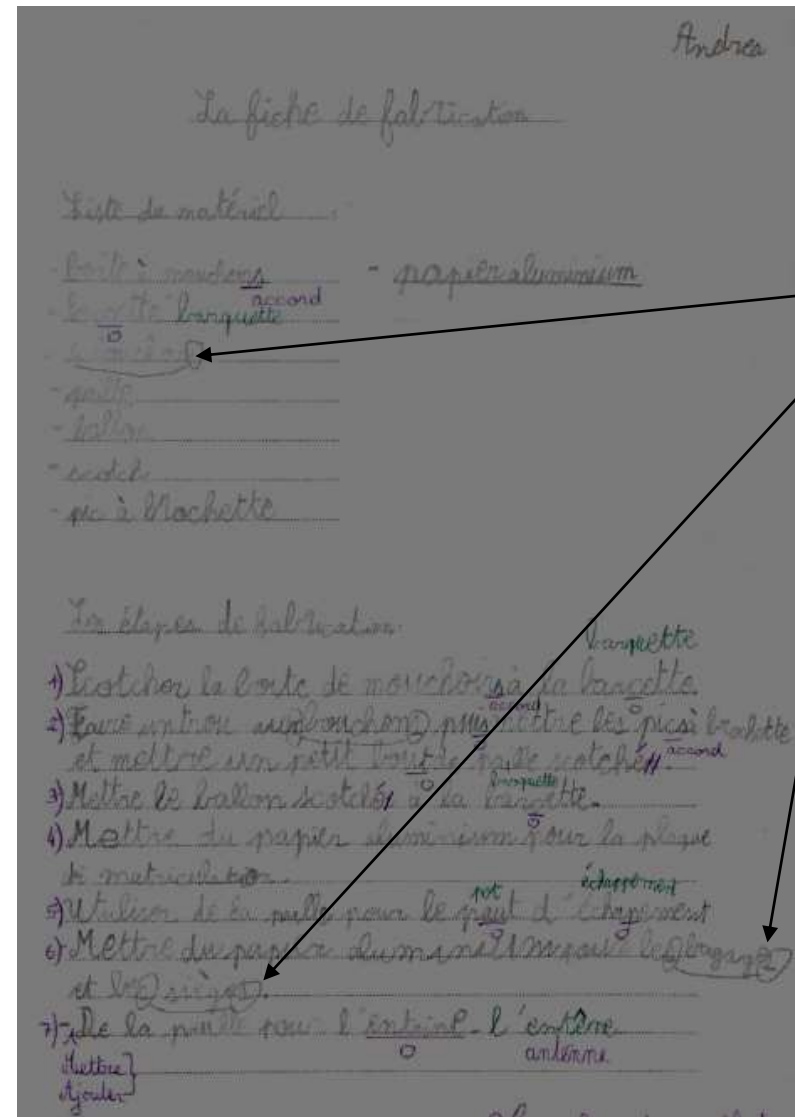 Andrea
La fiche de fabrication
Liste de matériel
- boite à mouchoirs - papier aluminium
accord
barquette
- paille
- ballon
- scotch
- pic à brochette
Les étapes de fabrication
barquette
1) Scotcher la boite de mouchoirs à la barcette.
accord
2) Faire un trou bouchon puis mettre les pics à brochette
et mettre un petit bout de paille scotché. accord
barquette
3) Mettre le ballon scotché à la barcette.
4) Mettre du papier aluminium pour la plaque
pot échappement
5) Utuliser de la paille pour le paut d'échapement
6) Mettre du papier aluminium pour les bagages
et les sièges.
7) - De la paille pour l'entaine - l'entène
Mettre antenne
Ajouter